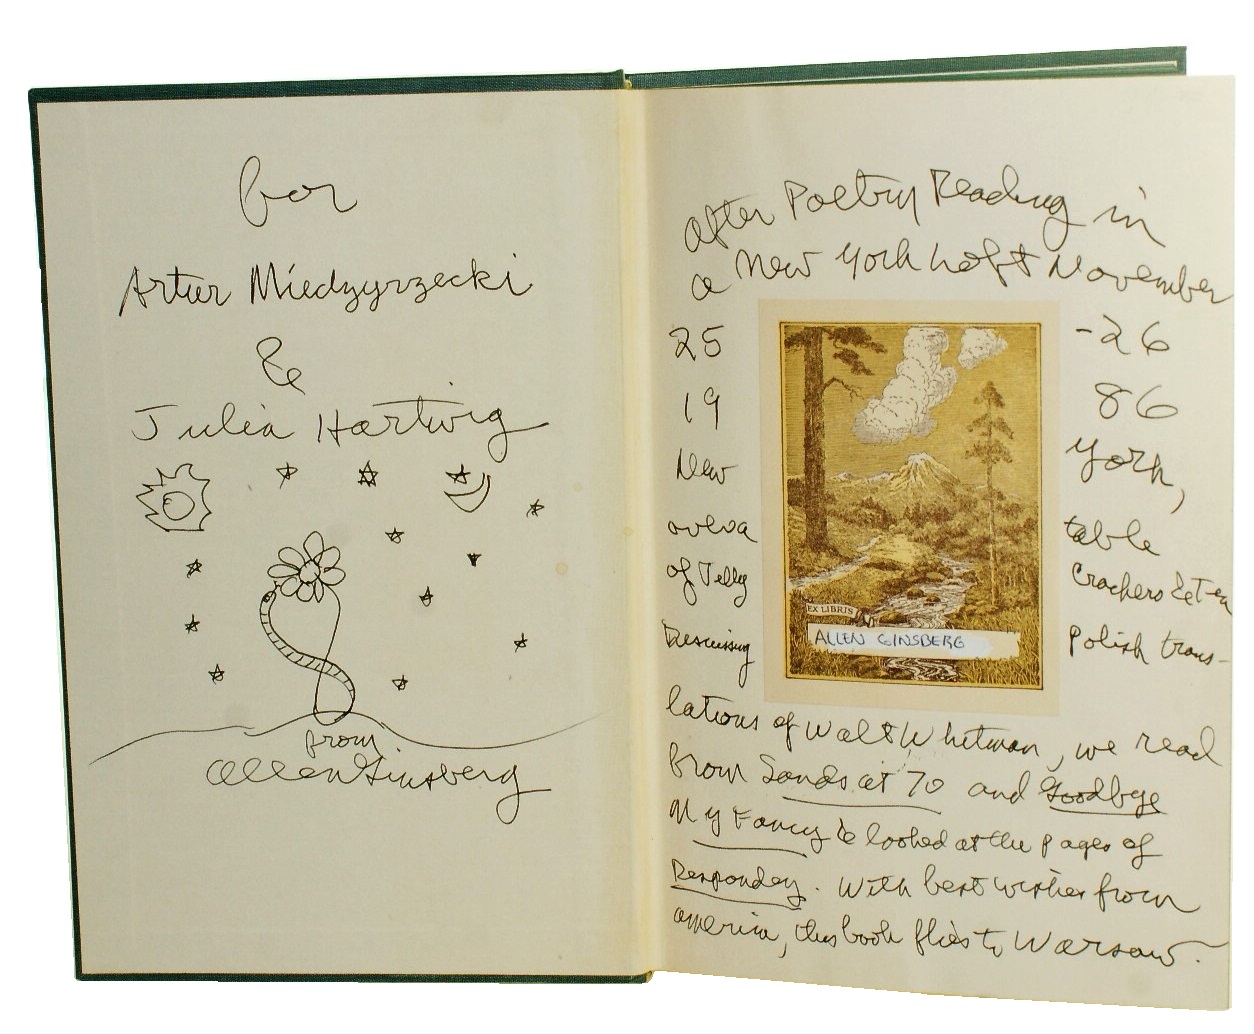 for
Artur Międzyrzecki
&
Julia Hartwig
from
Allen Ginsberg
After Poetry Reading in
a New York Loft November
25 -26
19 86
New York,
over a table
of Jelly Crackers &
Discussing Polish trans-
lations of Walt Whitman, we read
from Sands at 70 and Goodbye
My Fancy & looked at the pages of
Respondez. With best wishes from
America, this book flies to Warsaw.
EX LIBRIS
ALLEN GINSBERG